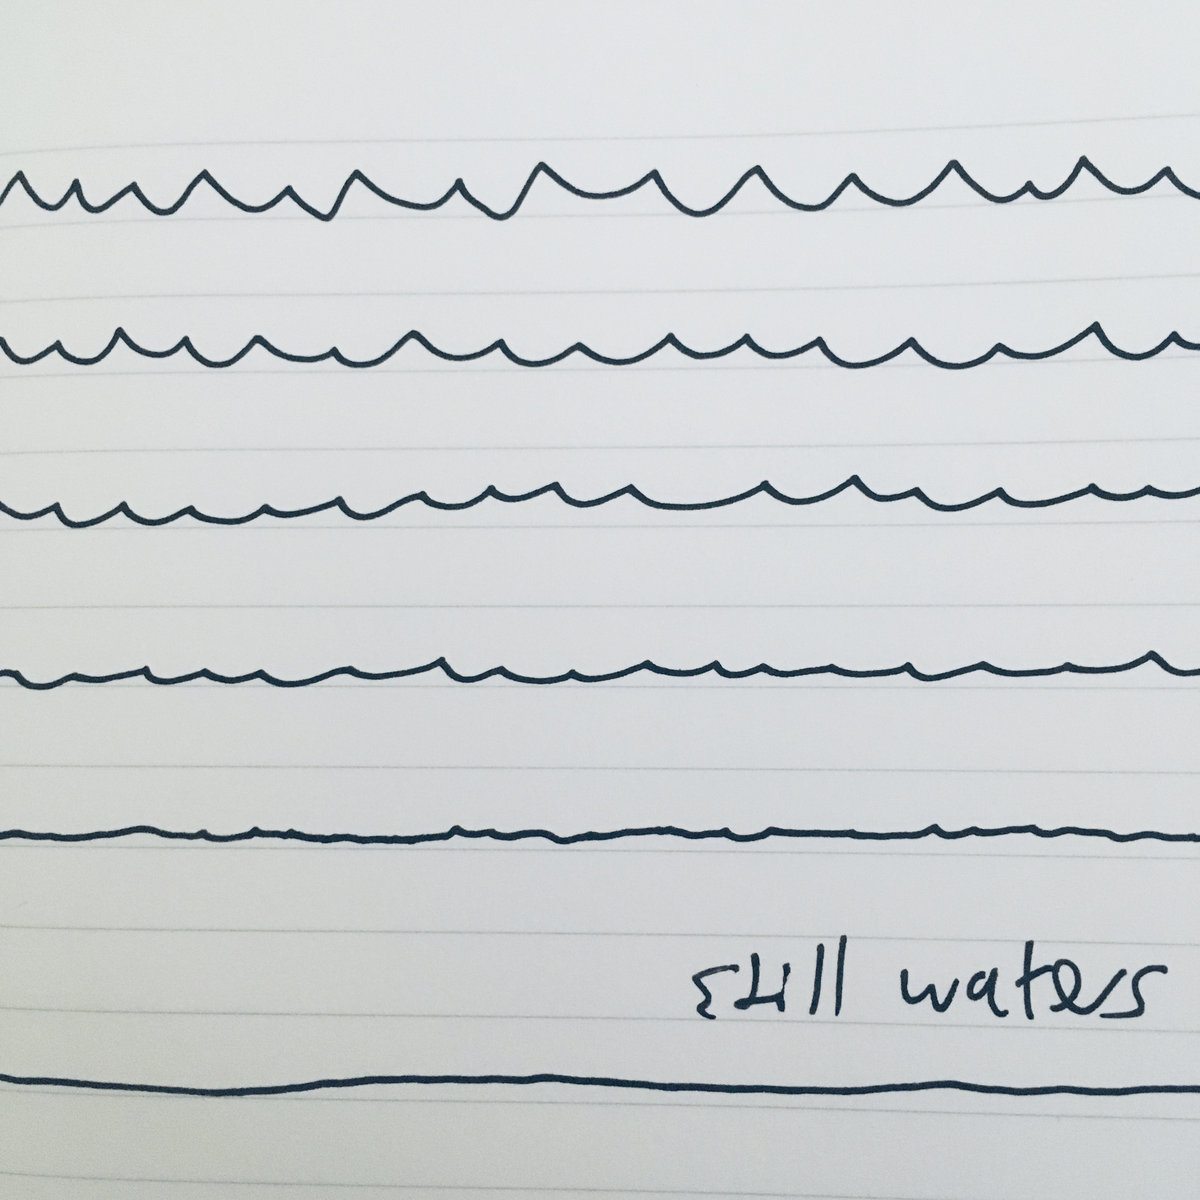 still waters